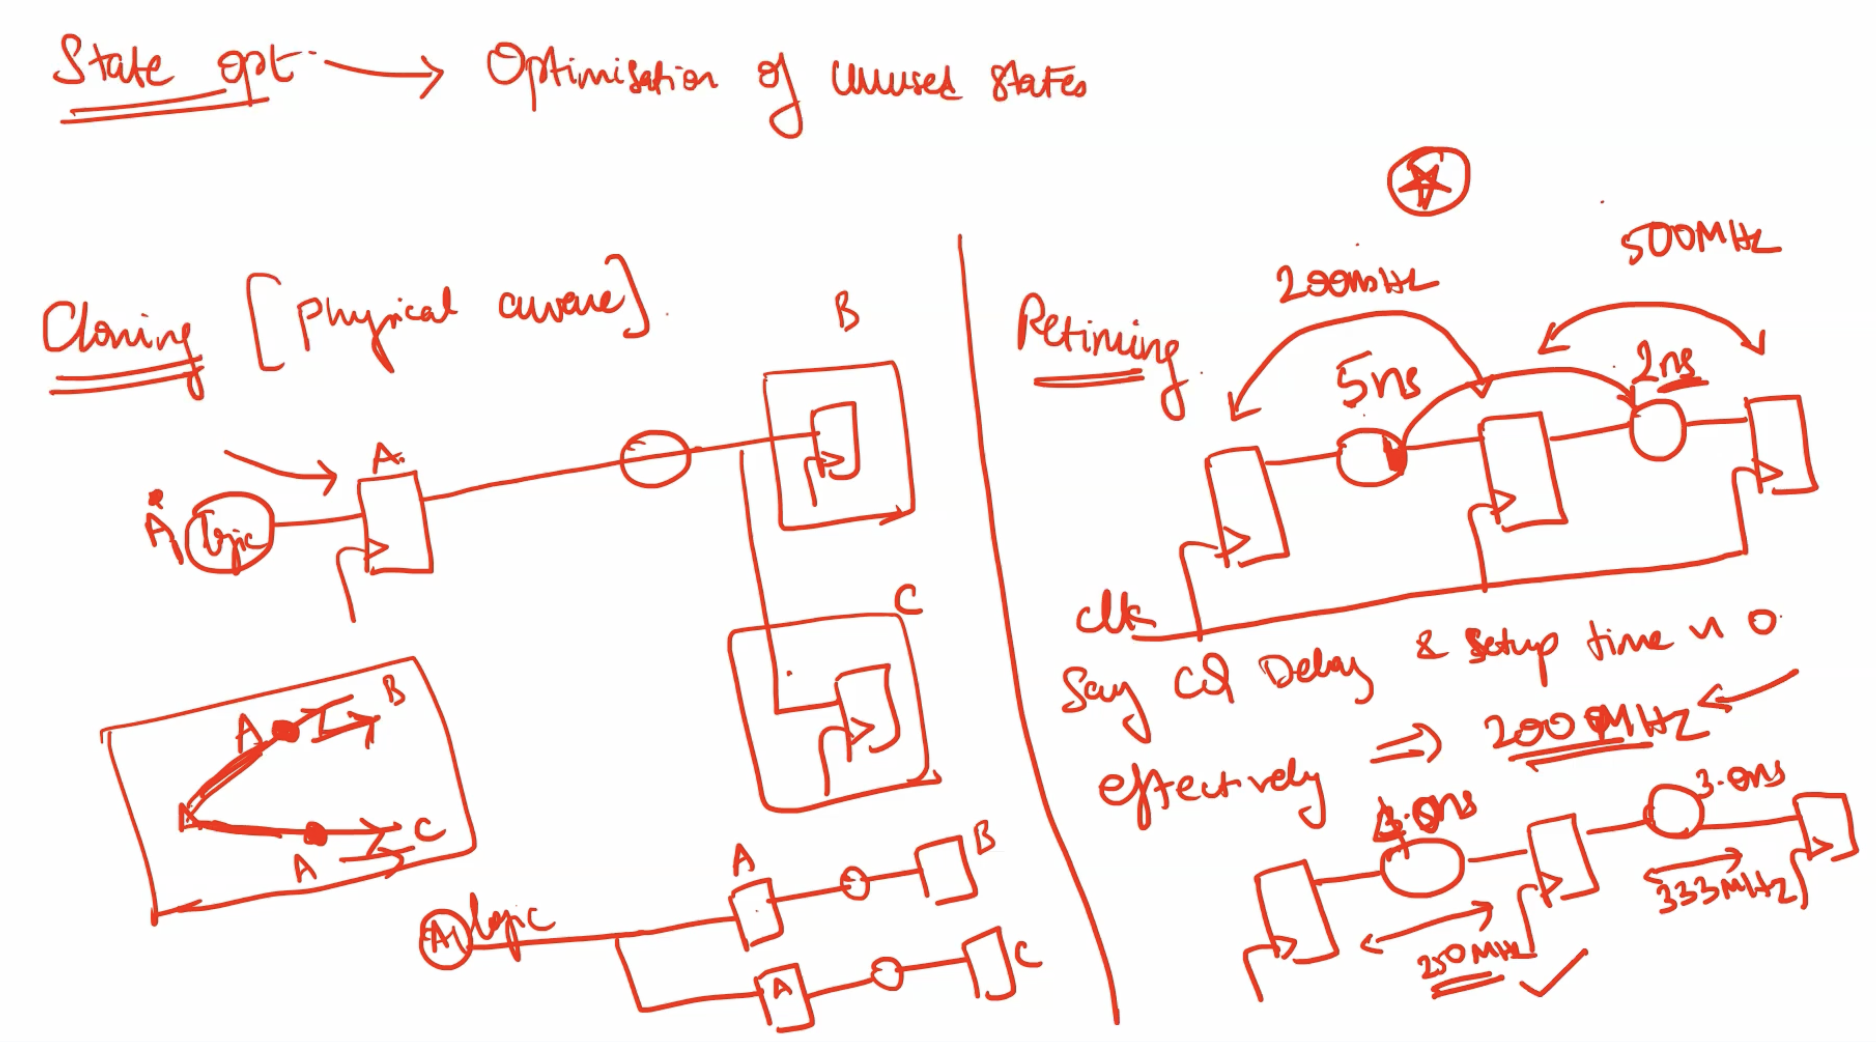 State opt. → Optimisation of unused states
Cloning [Physical aware].
B
A
A
logic
C
A
B
A
C
A
logic
A
B
A
C
Retiming
200MHz
500MHz
5ns
2ns
clk
Say CQ Delay & setup time ~ 0
effectively ⇒ 200MHz
4.0ns
3.0ns
250MHz
333MHz